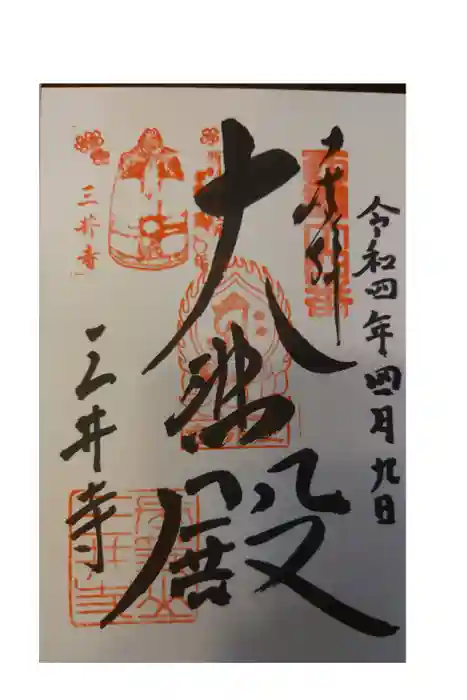 令和四年四月九日
奉拝
大悲殿
三井寺
三井寺